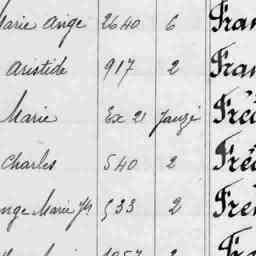 Marie Ange 2640 6 Fran
Aristide 917 2 Fran
Marie Ex 21 Fré
Charles 540 2 Fré
nge Marie Jh 533 2 Fre